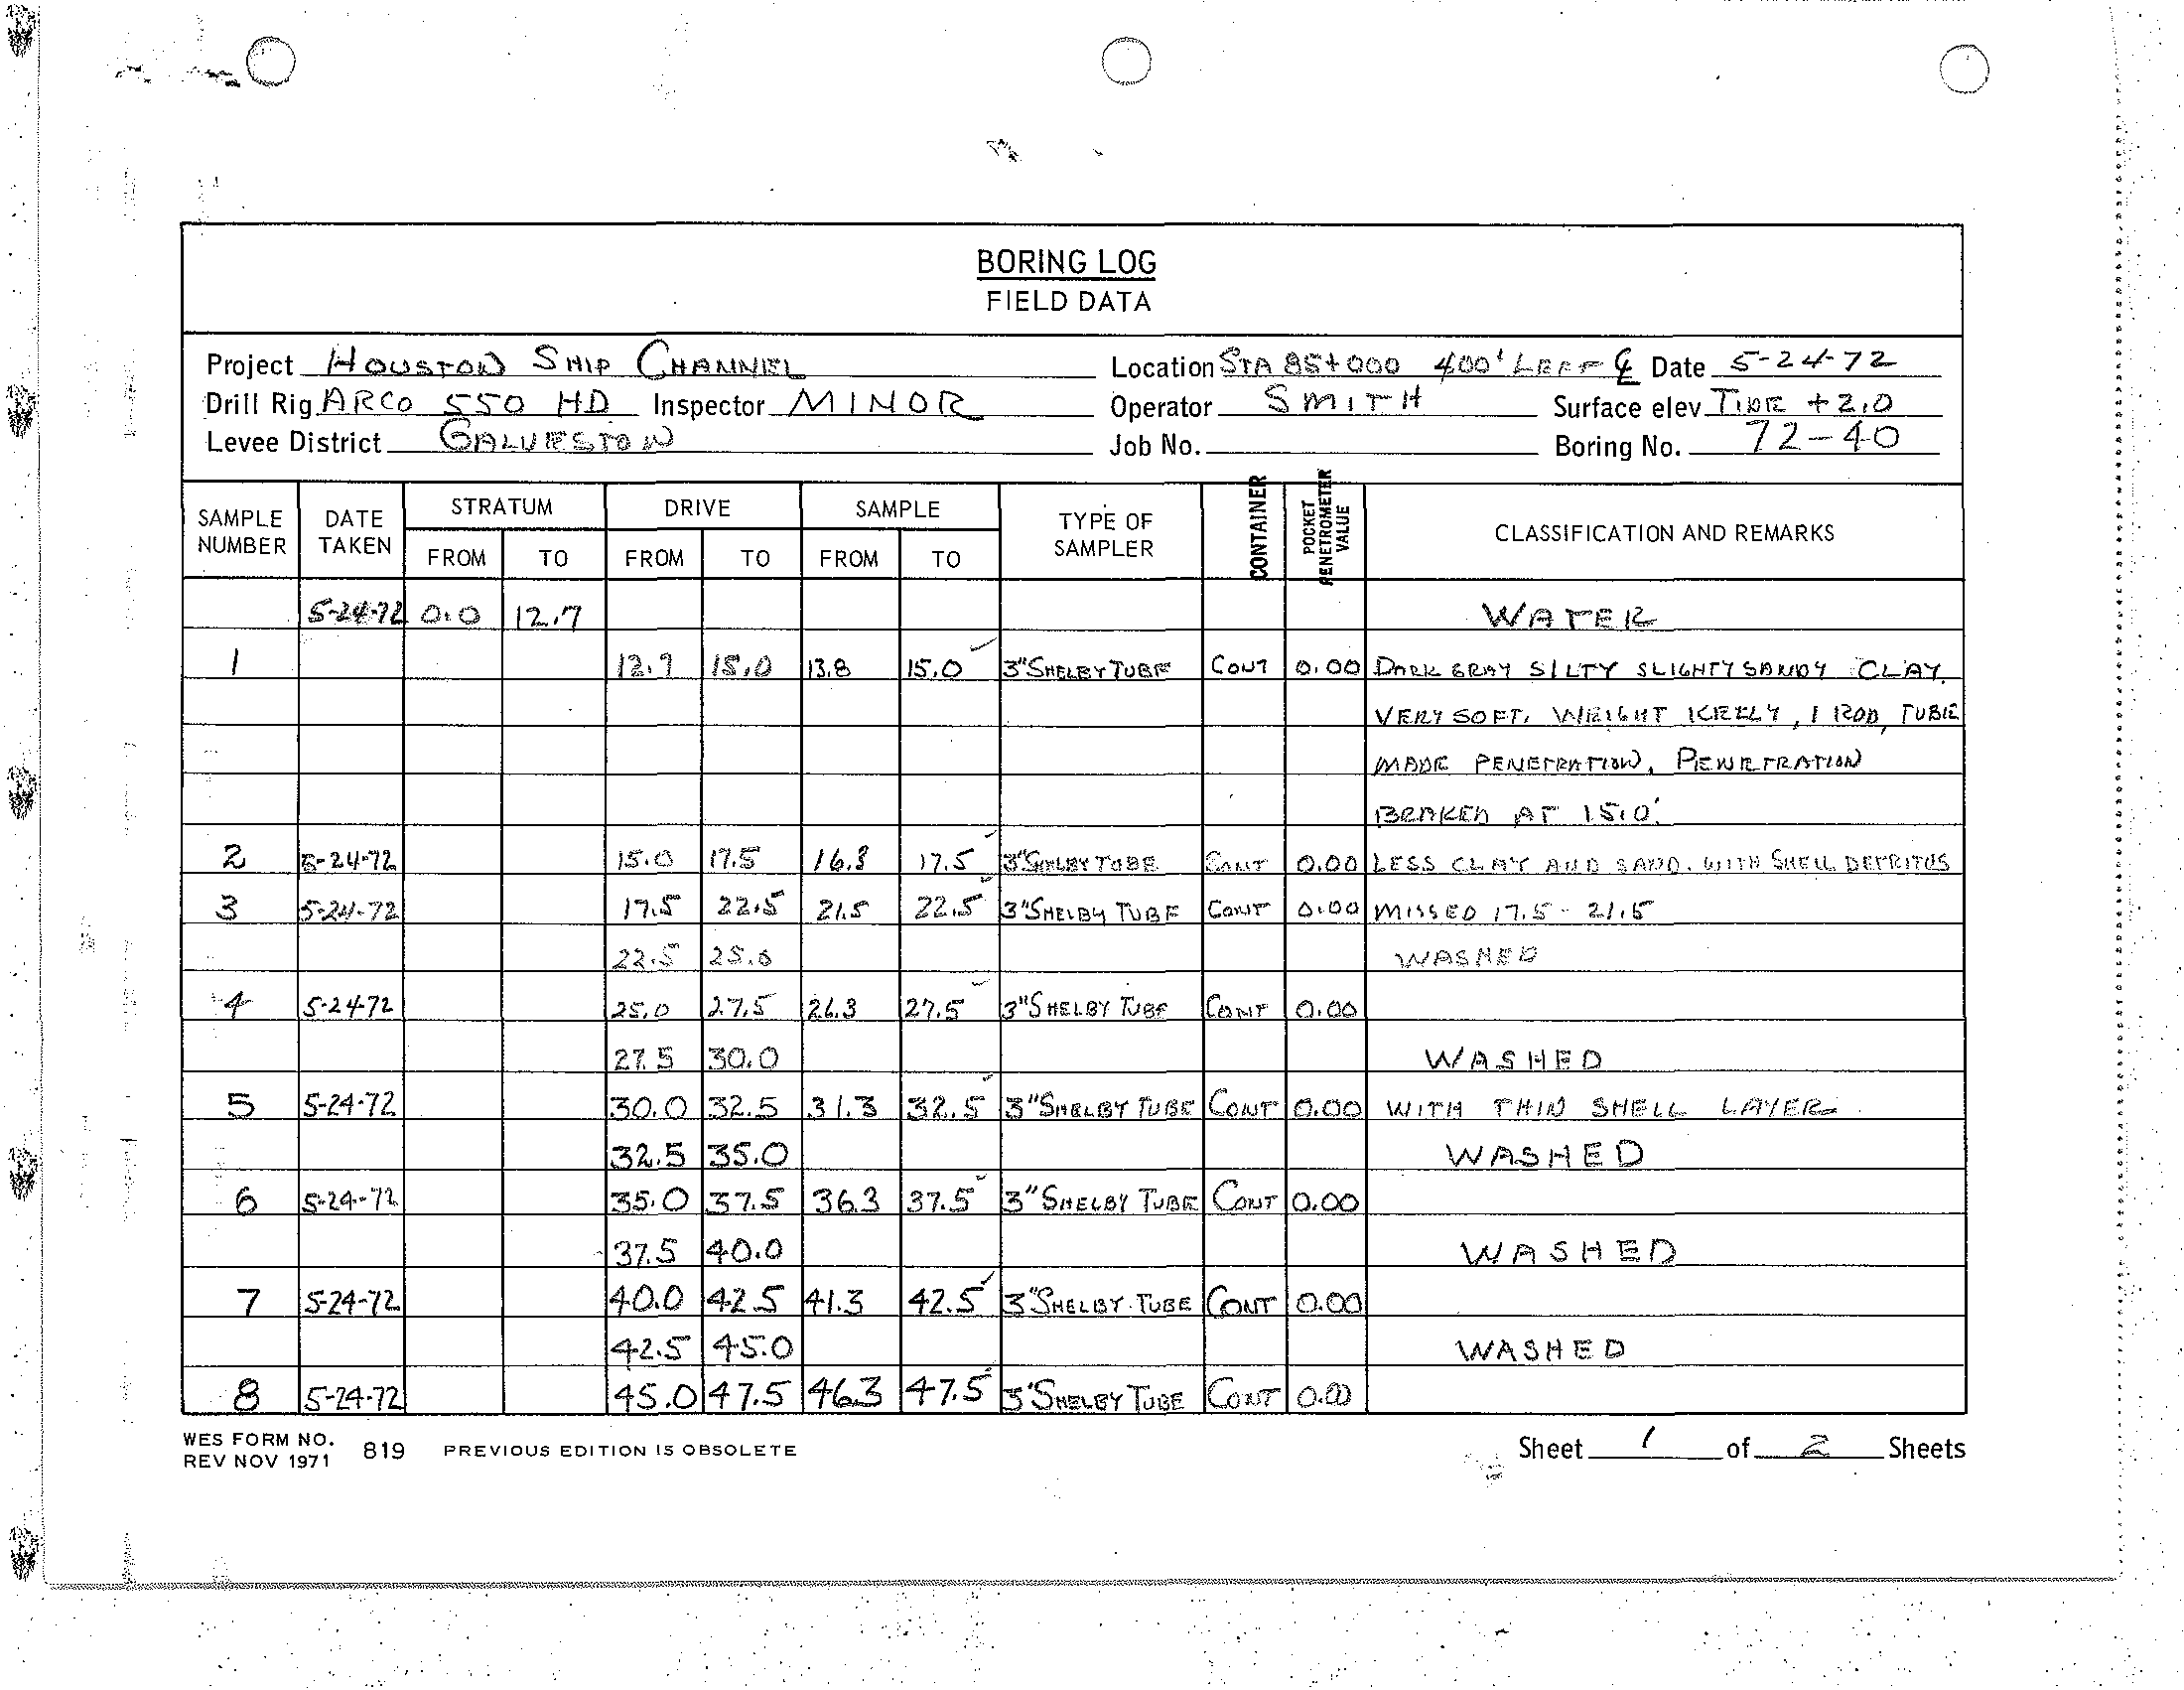 BORING LOG
FIELD DATA
Project HOUSTON SHIP CHANNEL Location STA 85+000 400' LEFT ℄ Date 5-24-72
Drill Rig ARCO 550 HD Inspector MINOR Operator SMITH Surface elev. TIDE +2.0
Levee District GALVESTON Job No. Boring No. 72-40
SAMPLE NUMBER DATE TAKEN STRATUM FROM TO DRIVE FROM TO SAMPLE FROM TO TYPE OF SAMPLER CONTAINER POCKET PENETROMETER VALUE CLASSIFICATION AND REMARKS
5-24-72 0.0 12.7 WATER
1 12.7 15.0 13.8 15.0 3" SHELBY TUBE CONT 0.00 DARK GRAY SILTY SLIGHTY SANDY CLAY.
VERY SOFT. WEIGHT KELLY, 1 ROD, TUBE
MADE PENETRATION. PENETRATION
BRAKED AT 15.0'
2 5-24-72 15.0 17.5 16.3 17.5 3" SHELBY TUBE CONT 0.00 LESS CLAY AND SAND. WITH SHELL DETRITUS
3 5-24-72 17.5 22.5 21.5 22.5 3" SHELBY TUBE CONT 0.00 MISSED 17.5 - 21.5
22.5 25.0 WASHED
4 5-24-72 25.0 27.5 26.3 27.5 3" SHELBY TUBE CONT 0.00
27.5 30.0 WASHED
5 5-24-72 30.0 32.5 31.3 32.5 3" SHELBY TUBE CONT 0.00 WITH THIN SHELL LAYER
32.5 35.0 WASHED
6 5-24-72 35.0 37.5 36.3 37.5 3" SHELBY TUBE CONT 0.00
37.5 40.0 WASHED
7 5-24-72 40.0 42.5 41.3 42.5 3" SHELBY TUBE CONT 0.00
42.5 45.0 WASHED
8 5-24-72 45.0 47.5 46.3 47.5 3" SHELBY TUBE CONT 0.00
WES FORM NO. 819 PREVIOUS EDITION IS OBSOLETE Sheet 1 of 2 Sheets
REV NOV 1971